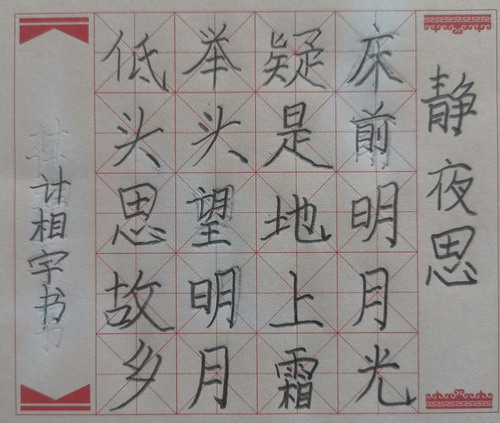 静夜思
床前明月光
疑是地上霜
举头望明月
低头思故乡
计相字书